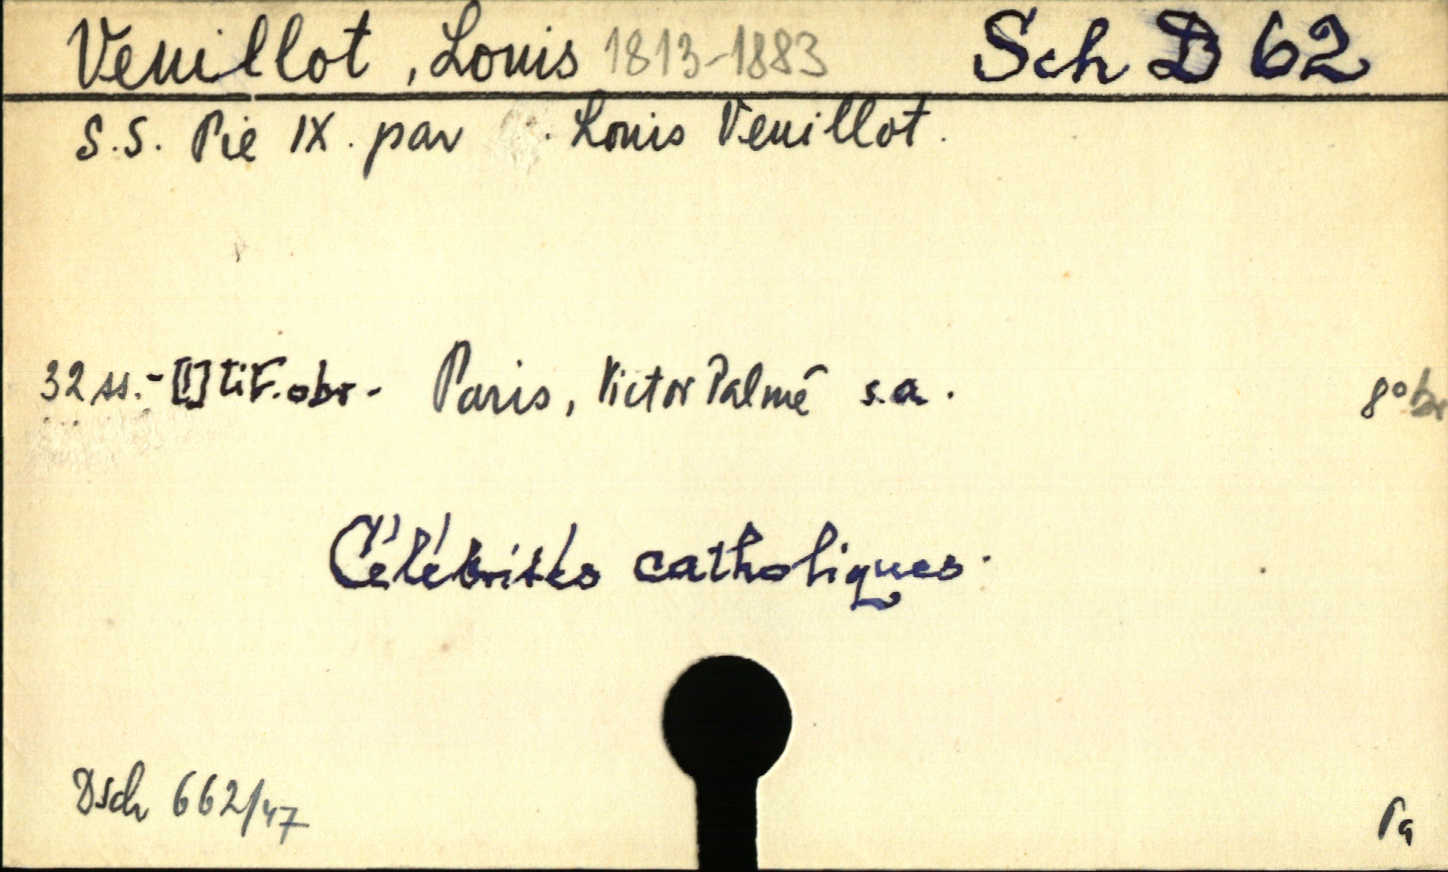 Veuillot, Louis 1813-1883 Sch D 62
S.S. Pie IX. par . Louis Veuillot.
32 ss. - [1] tit. obr. - Paris, Victor Palmé s.a. 8° br
Célébrités catholiques.
Dsch 662/47